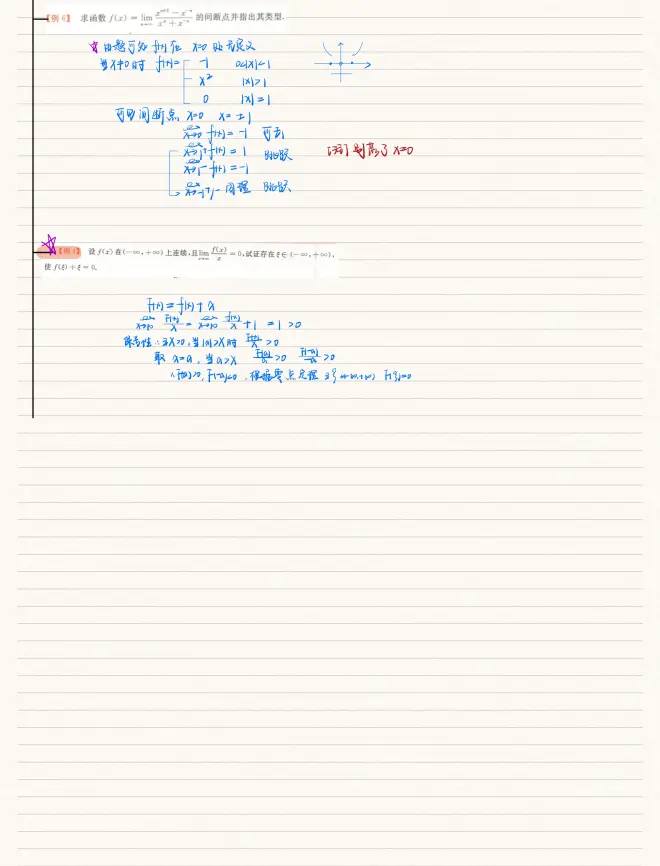 【例 6】 求函数 f(x) = lim_{n→∞} (x^{n+2} − x^{−n})/(x^n + x^{−n}) 的间断点并指出其类型.
☆ 由题可知 f(x) 在 x=0 处无定义
当x≠0时 f(x)= -1 0<|x|<1
x² |x|>1
0 |x|=1
可疑间断点 x=0 x=±1
lim x→0 f(x) = -1 可去
lim x→1⁺ f(x) = 1 跳跃
易忘了 x=0
lim x→1⁻ f(x) = -1
lim x→-1⁺/- 同理 跳跃
【例 1】 设 f(x) 在(−∞, +∞) 上连续,且lim_{x→∞} f(x)/x = 0,试证存在 ξ ∈ (−∞, +∞),
使 f(ξ) + ξ = 0.
F(x) = f(x) + x
lim x→∞ F(x)/x = lim x→∞ f(x)/x + 1 = 1 > 0
保号性 ∴ ∃X>0, 当|x|>X时 F(x)/x >0
取 x=a, 当a>X F(a)/a >0 F(-a)/-a >0
∴ F(a)>0, F(-a)<0, 根据零点定理 ∃ξ (-∞,+∞) F(ξ)=0